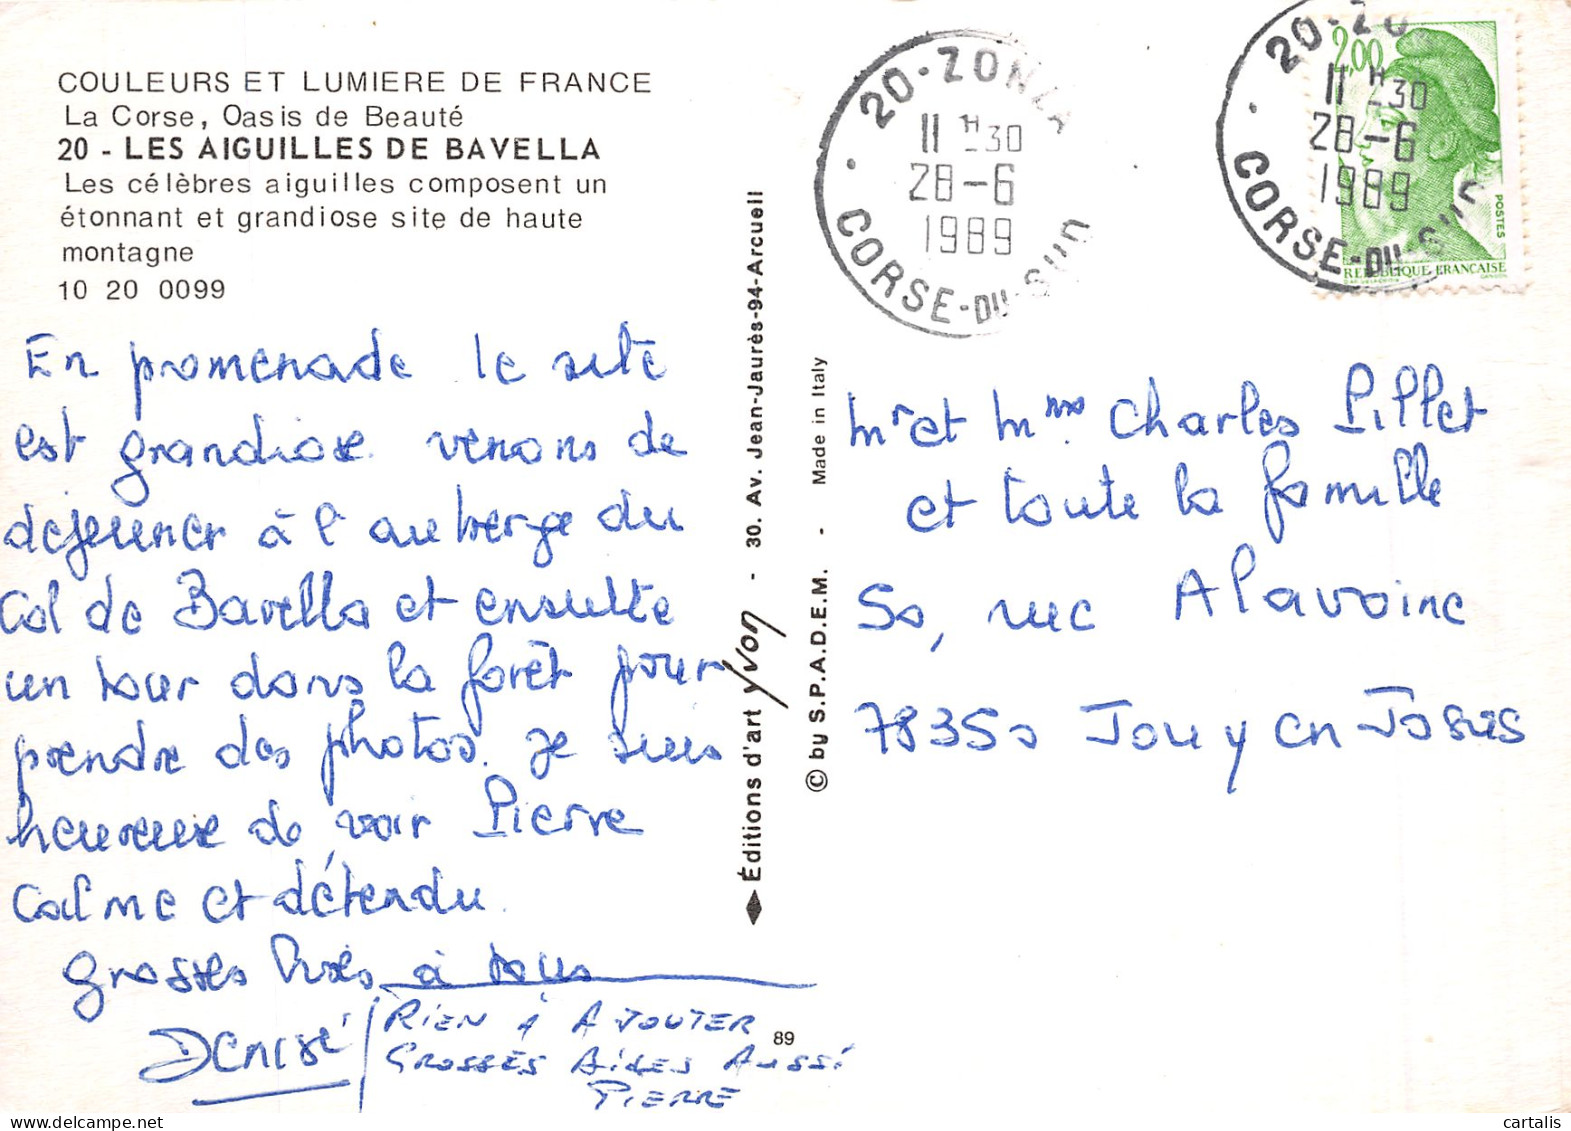 COULEURS ET LUMIERE DE FRANCE
La Corse, Oasis de Beauté
20 - LES AIGUILLES DE BAVELLA
Les célèbres aiguilles composent un
étonnant et grandiose site de haute
montagne
10 20 0099
En promenade le site
est grandiose. venons de
dejeuner à l'auberge du
Col de Bavella et ensuite
un tour dans la forêt pour
prendre des photos. je suis
heureuse de voir Pierre
Calme et détendu.
grosses bises à tous
Denise
RIEN À AJOUTER
GROSSES BISES AUSSI
PIERRE
89
Éditions d'art yvon - 30. Av. Jean-Jaurès-94-Arcueil
© by S.P.A.D.E.M. - Made in Italy
20-ZONZA
11 H 30
28-6
1989
CORSE-DU-SUD
20-ZO
11 H 30
28-6
1989
CORSE-DU-SUD
2,00
POSTES
REPUBLIQUE FRANCAISE
Mr et Mme Charles Pillet
et toute la famille
50, rue Alavoine
78350 Jouy en Josas
cartalis